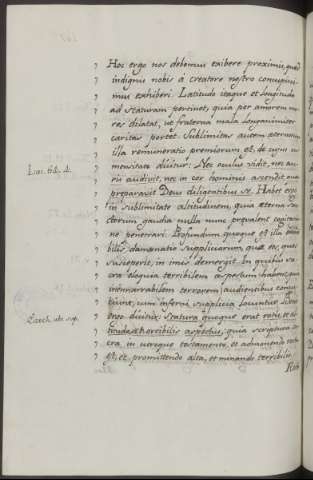 Hoc ergo nos debemus exibere proximis, quod
indignis nobis à creatore nostro conspici-
mus exhiberi. Latitudo itaque et longitudo
ad staturam pertinet, quia per amorem mo-
res dilatat, ut fraterna mala longanimiter
caritas portet. Sublimitas autem
illa remuneratio premiorum est, de cujus im-
mensitate dicitur: Nec oculus vidit, nec au-
Isai. 64. d.
ris audivit, nec in cor hominis ascendit, quæ
preparavit Deus diligentibus se. Habet ergo
in sublimitate altitudinem, quia æterna san-
ctorum gaudia nulla nunc prevalent cogitatio-
ne penetrari. Profundum quoque est illa
bilis damnatio suppliciorum, quæ eos, quos
susceperit, in imis demergit. In quibus sa-
cra eloquia terribilem aspectum habent, quia
inenarrabilem terrorem audientibus
cum inferni supplicia
ergo dicitur: Statura quoque erat rotis, et al-
Ezech. ubi sup.
titudo, et horribilis aspectus, quia scriptura sa-
cra, in utroque testamento, et admonendo
est, et promittendo alta, et minando terribilis.